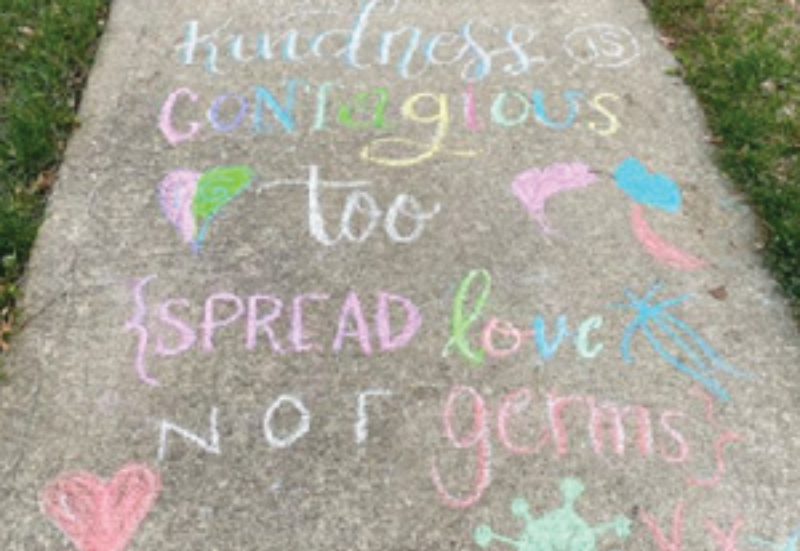 kindness is
CONTagious
too
{SPREAD love
NOT germs}